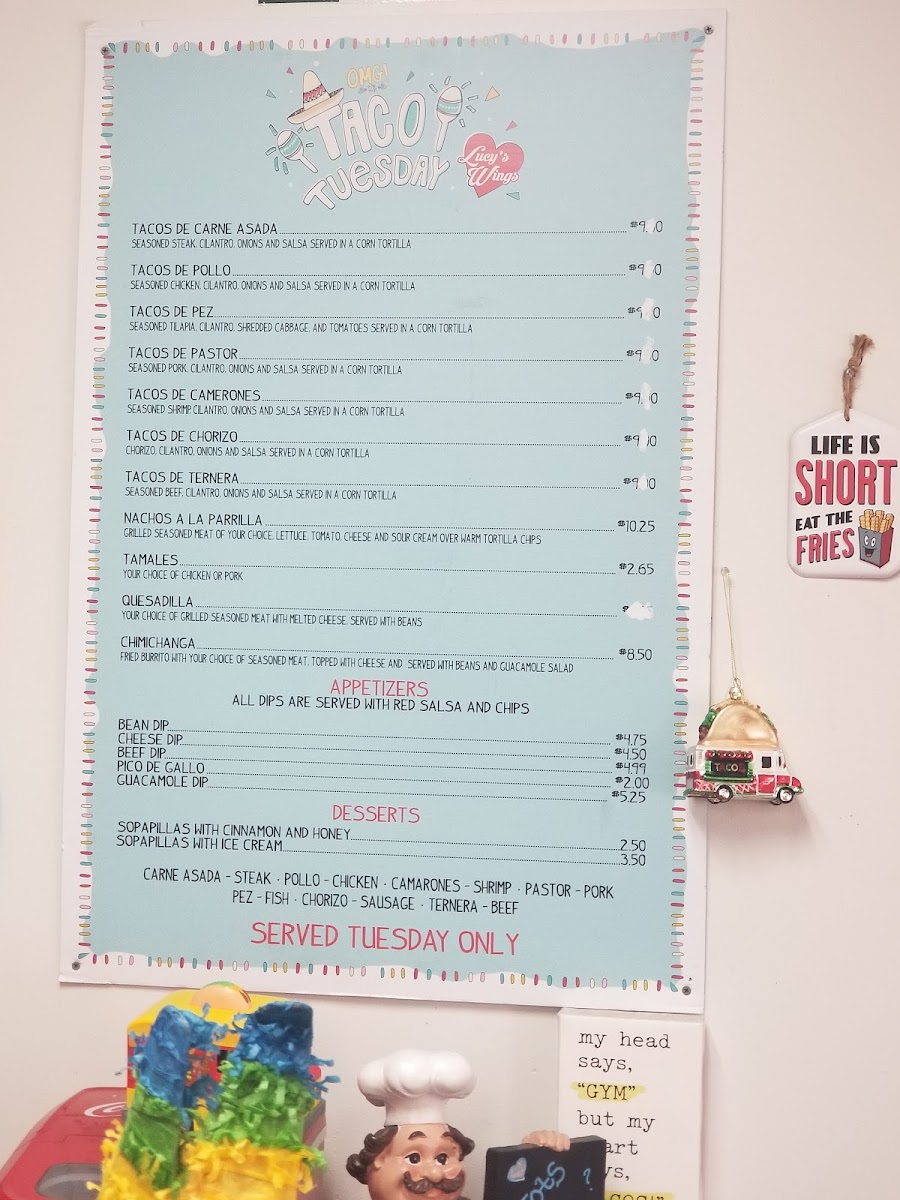 OMG!
TACO
TUESDAY
Lucy's
Wings
TACOS DE CARNE ASADA
SEASONED STEAK, CILANTRO, ONIONS AND SALSA SERVED IN A CORN TORTILLA
TACOS DE POLLO
SEASONED CHICKEN, CILANTRO, ONIONS AND SALSA SERVED IN A CORN TORTILLA
TACOS DE PEZ
SEASONED TILAPIA, CILANTRO, SHREDDED CABBAGE, AND TOMATOES SERVED IN A CORN TORTILLA
TACOS DE PASTOR
SEASONED PORK, CILANTRO, ONIONS AND SALSA SERVED IN A CORN TORTILLA
TACOS DE CAMERONES
SEASONED SHRIMP, CILANTRO, ONIONS AND SALSA SERVED IN A CORN TORTILLA
TACOS DE CHORIZO
CHORIZO, CILANTRO, ONIONS AND SALSA SERVED IN A CORN TORTILLA
TACOS DE TERNERA
SEASONED BEEF, CILANTRO, ONIONS AND SALSA SERVED IN A CORN TORTILLA
NACHOS A LA PARRILLA $10.25
GRILLED SEASONED MEAT OF YOUR CHOICE, LETTUCE, TOMATO, CHEESE AND SOUR CREAM OVER WARM TORTILLA CHIPS
TAMALES $2.65
YOUR CHOICE OF CHICKEN OR PORK
QUESADILLA
YOUR CHOICE OF GRILLED SEASONED MEAT WITH MELTED CHEESE, SERVED WITH BEANS
CHIMICHANGA $8.50
FRIED BURRITO WITH YOUR CHOICE OF SEASONED MEAT, TOPPED WITH CHEESE AND SERVED WITH BEANS AND GUACAMOLE SALAD
APPETIZERS
ALL DIPS ARE SERVED WITH RED SALSA AND CHIPS
BEAN DIP $4.75
CHEESE DIP $4.50
BEEF DIP $4.99
PICO DE GALLO $2.00
GUACAMOLE DIP $5.25
DESSERTS
SOPAPILLAS WITH CINNAMON AND HONEY 2.50
SOPAPILLAS WITH ICE CREAM 3.50
CARNE ASADA - STEAK · POLLO - CHICKEN · CAMARONES - SHRIMP · PASTOR - PORK
PEZ - FISH · CHORIZO - SAUSAGE · TERNERA - BEEF
SERVED TUESDAY ONLY
LIFE IS
SHORT
EAT THE
FRIES
TACOS
my head
says,
"GYM"
but my